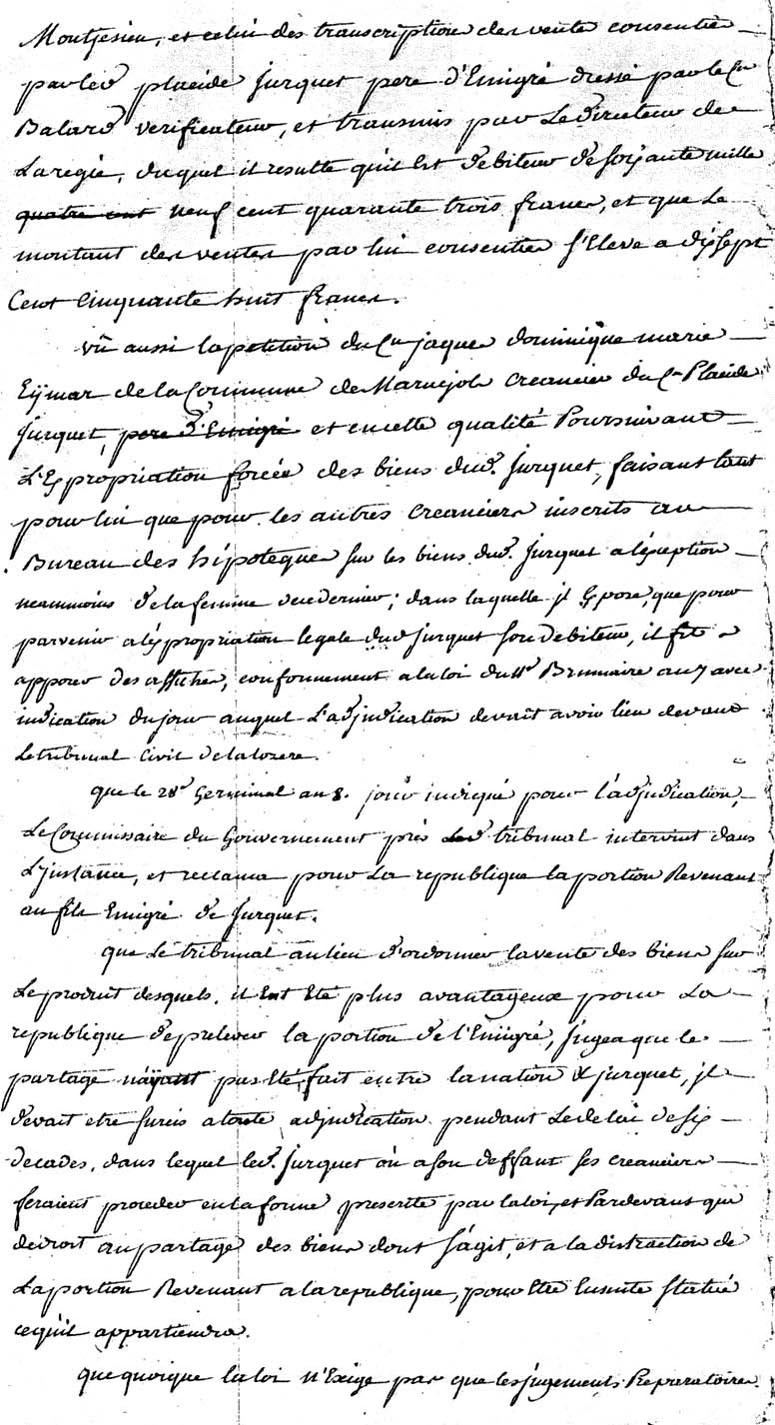 Montjesieu, et celui des transcriptions des ventes consenties
par led placide jurquet pere d'Emigré dressé par le Cn
Balard verificateur, et transmis par Le directeur de
La regie, duquel il resulte quil Est debiteur de soixante mille
quatre cent neuf cent quarante trois francs, et que Le
montant des ventes par lui consenties s'Eleve a dixsept
Cent Cinquante huit francs.
vû aussi la petition du Cn jaques dominique marie
Eymar de la Commune de Maruejols creancier du Cn Placide
jurquet, pere d'Emigré et en cette qualité Poursuivant
L'Expropriation forcée des biens dud. jurquet, faisant tant
pour lui que pour les autres creanciers inscrits au
Bureau des hipoteques sur les biens dud. jurquet a l'exception
neanmoins de la femme de ce dernier; dans laquelle il Expose, que pour
parvenir a l'expropriation legale dud jurquet son debiteur, il fit
apposer des affiches, conformement a la loi du 11e Brumaire an 7 avec
indication du jour auquel L'adjudication devait avoir lieu devant
Le tribunal Civil de la lozere.
que le 28e Germinal an 8. jour indiqué pour l'adjudication,
Le Commissaire du Gouvernement près led tribunal intervint dans
L'instance, et reclama pour La republique la portion Revenant
au fils Emigré de jurquet.
que Le tribunal au lieu d'ordonner la vente des biens sur
Le produit desquels, il Eut Eté plus avantageux pour La
republique de prelever la portion de l'Emigré, jugea que le
partage n'ayant pas Eté fait entre la nation & jurquet, il
devait etre sursis a toute adjudication pendant Le delai de six
decades, dans lequel led. jurquet ou a son deffaut ses creanciers
feraient proceder en la forme prescritte par la loi, et Pardevant qui
de droit au partage des biens dont s'agit, et a la distraction de
La portion Revenant a la republique, pour Etre Ensuite statué
ce qu'il appartiendra.
que quoique la loi n'Exige pas que les jugements Preparatoires